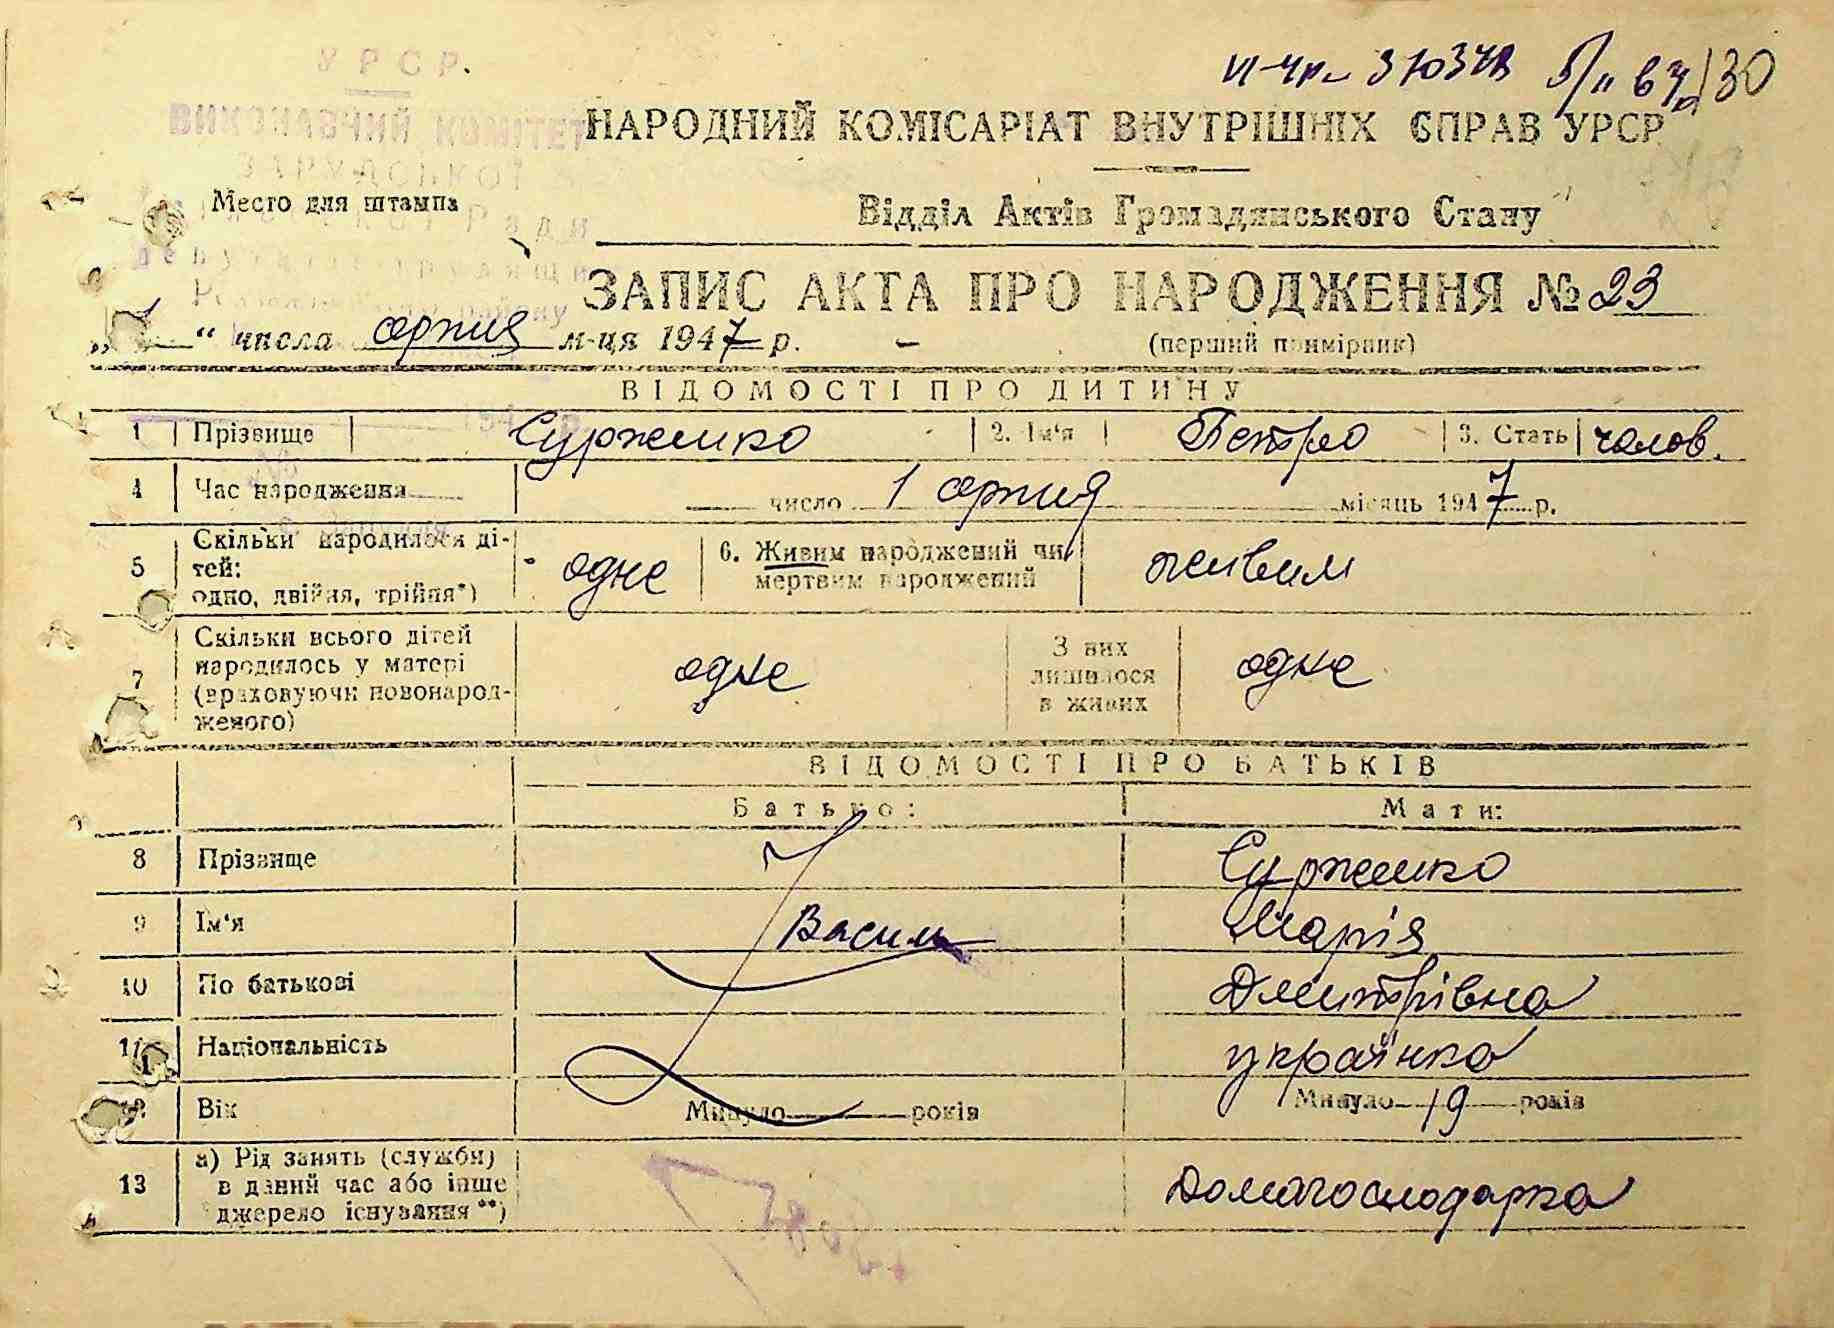 УРСР.
ВИКОНАВЧИЙ КОМІТЕТ
НАРОДНИЙ КОМІСАРІАТ ВНУТРІШНІХ СПРАВ УРСР
130
Место для штампа
Відділ Актів Громадянського Стану
ЗАПИС АКТА ПРО НАРОДЖЕННЯ № 23
„ “ числа серпня м-ця 1947 р.
(перший примірник)
ВІДОМОСТІ ПРО ДИТИНУ
1 Прізвище Сурженко 2. Ім'я Петро 3. Стать чолов.
4 Час народження число 1 серпня місяць 1947 р.
5 Скільки народилося ді-
тей:
одно, двійня, трійня*)
одне
6. Живим народжений чи
мертвим народжений
живим
7 Скільки всього дітей
народилось у матері
(враховуючи новонарод-
женого)
одне
З них
лишилося
в живих
одне
ВІДОМОСТІ ПРО БАТЬКІВ
Батько: Мати:
8 Прізвище Сурженко
9 Ім'я Василь Марія
10 По батькові Дмитрівна
11 Національність українка
12 Вік Минуло років Минуло 19 років
13 а) Рід занять (служби)
в даний час або інше
джерело існування**)
домагосподарка